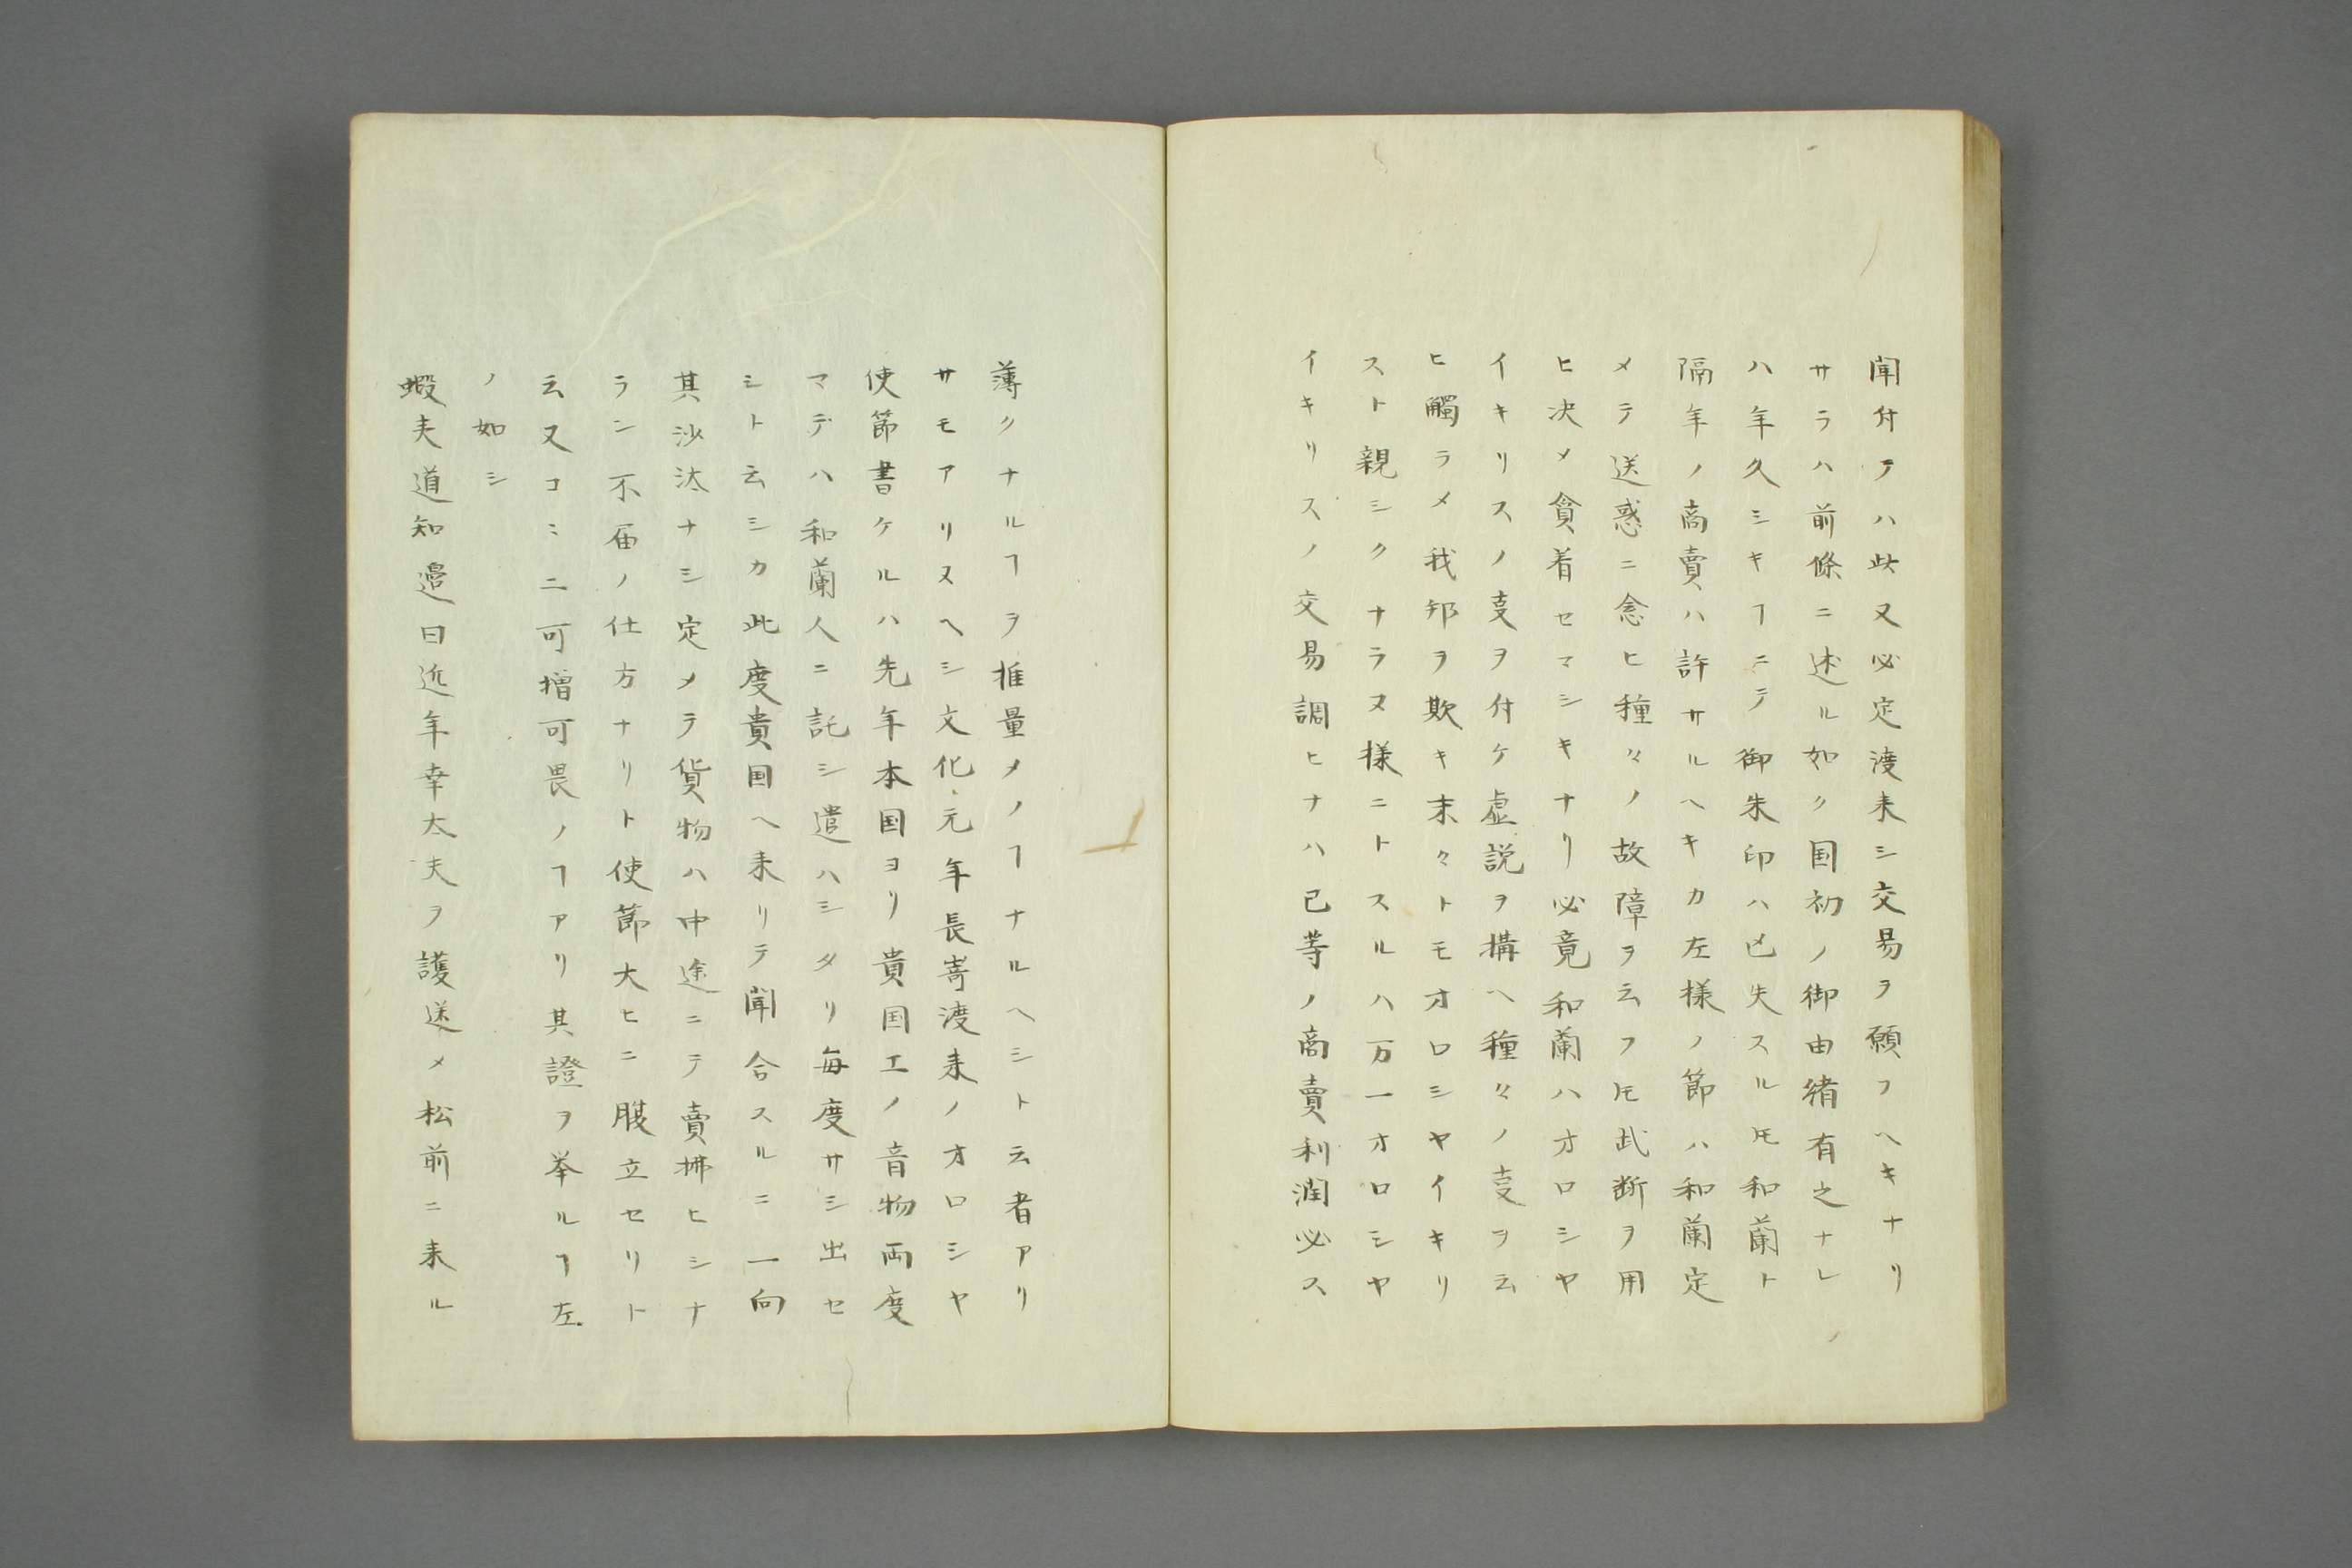 聞付アハ此又必定渡来シ交易ヲ願フヘキナリ
サラハ前條ニ述ル如ク国初ノ御由緒有之ナレ
ハ年久シキヿニテ御朱印ハ亡失スル𪜈和蘭ト
隔年ノ商賣ハ許サルヘキカ左様ノ節ハ和蘭定
メテ迷惑ニ念ヒ種々ノ故障ヲ云フ𪜈武断ヲ用
ヒ决メ貪着セマシキナリ必竟和蘭ハオロシヤ
イキリスノ㕝ヲ付ケ虚説ヲ構ヘ種々ノ㕝ヲ云
ヒ觸ラメ我邦ヲ欺キ末々トモオロシヤイキリ
スト親シクナラヌ様ニトスルハ万一オロシヤ
イキリスノ交易調ヒナハ己等ノ商賣利潤必ス
薄クナルヿヲ推量メノヿナルヘシト云者アリ
サモアリヌヘシ文化元年長嵜渡来ノオロシヤ
使節書ケルハ先年本国ヨリ貴国エノ音物両度
マデハ和蘭人ニ託シ遣ハシタリ毎度サシ出セ
シト云シカ此度貴国ヘ来リテ聞合スルニ一向
其沙汰ナシ定メテ貨物ハ中途ニテ賣拂ヒシナ
ラン不届ノ仕方ナリト使節大ヒニ腹立セリト
云又コヽニ可増可畏ノヿアリ其證ヲ挙ルヿ左
ノ如シ
蝦夷道知邉曰近年幸太夫ヲ護送メ松前ニ来ル